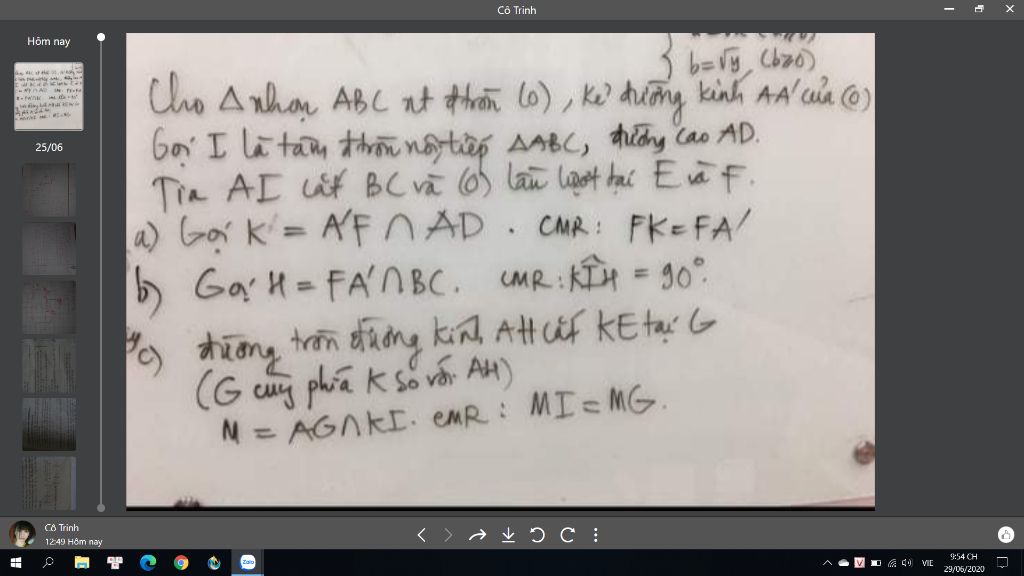 Cô Trinh
Hôm nay
25/06
b=√y (b≥0)
Cho Δ nhọn ABC nt đtròn (O), kẻ đường kính AA' của (O)
Gọi I là tâm đtròn nội tiếp ΔABC, đường cao AD.
Tia AI cắt BC và (O) lần lượt tại E và F.
a) Gọi K = A'F ∩ AD . CMR: FK = FA'
b) Gọi H = FA' ∩ BC. CMR: KÎH = 90°.
c) đường tròn đường kính AH cắt KE tại G
(G cùng phía K so với AH)
M = AG ∩ KI. CMR: MI = MG.
Cô Trinh
12:49 Hôm nay
Zalo
VIE
9:54 CH
29/06/2020